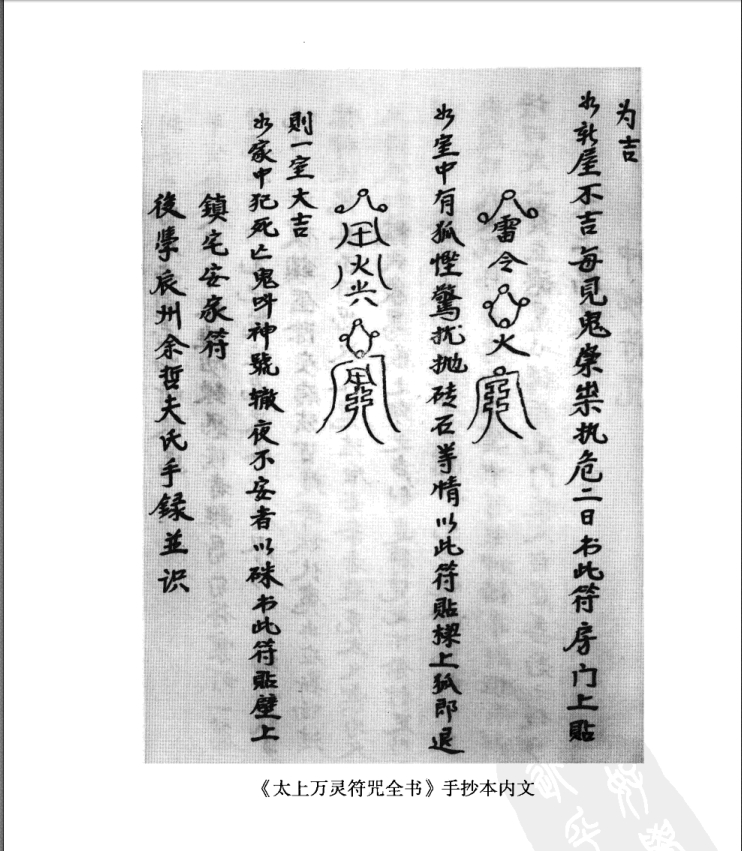 为吉
如新屋不吉每見鬼祟执危二日书此符房门上貼
雷令
火
如室中有狐怪驚扰抛砖石等情以此符貼樑上狐即退
田火
則一室大吉
如家中犯死亡鬼叫神號辙夜不安者以硃书此符貼壁上
鎮宅安家符
後學辰州余哲夫氏手録並识
《太上万灵符咒全书》手抄本内文